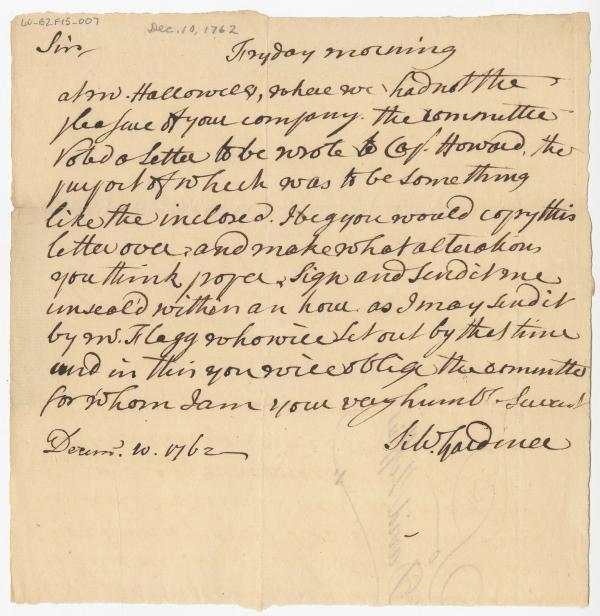 LO-B2F15-007
Dec. 10, 1762
Sir, Fryday morning
at mr. Hallowells, where we had not the
pleasure of your company. the committee
Voted a Letter to be wrote to Cap. Howard, the
purport of which was to be something
like the inclosed. I beg you would copy this
letter over, and make what alterations
you think proper, sign and send it me
unseald within an hour. as I may send it
by mr. Flagg who will set out by that time
and in this you will oblige the committe
for whom I am your very humbl Servant
Decemr. 10. 1762 Silv. Gardiner